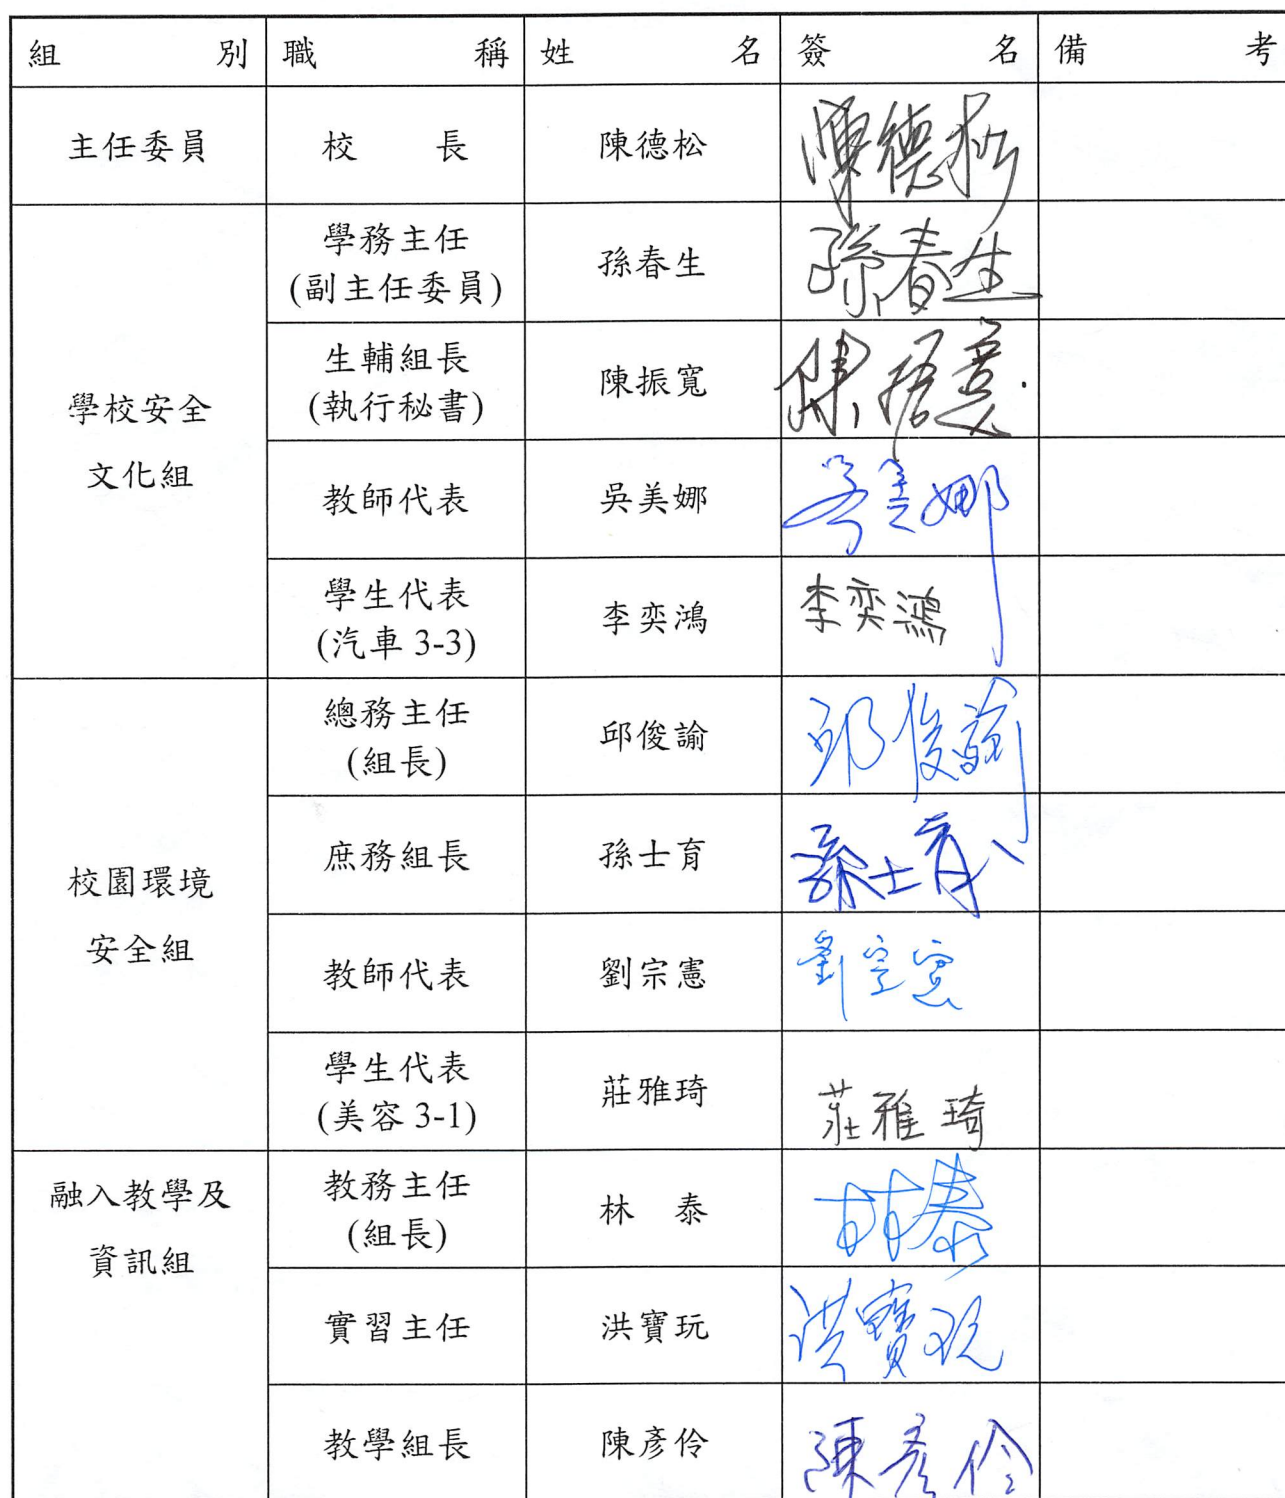 組別 職稱 姓名 簽名 備考
主任委員 校長 陳德松 陳德松
學校安全
文化組
學務主任
(副主任委員)
孫春生 孫春生
生輔組長
(執行秘書)
陳振寬 陳振寬
教師代表 吳美娜 吳美娜
學生代表
(汽車 3-3)
李奕鴻 李奕鴻
校園環境
安全組
總務主任
(組長)
邱俊諭 邱俊諭
庶務組長 孫士育 孫士育
教師代表 劉宗憲 劉宗憲
學生代表
(美容 3-1)
莊雅琦 莊雅琦
融入教學及
資訊組
教務主任
(組長)
林泰 林泰
實習主任 洪寶玩 洪寶玩
教學組長 陳彥伶 陳彥伶